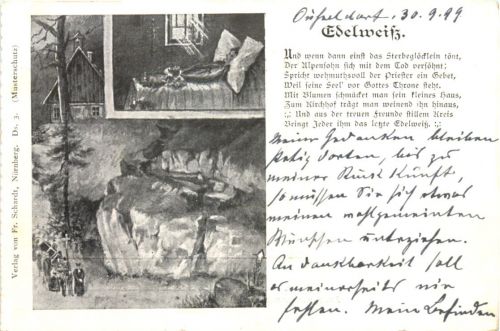 Düsseldorf. 30.9.99
Edelweiß.
Und wenn dann einst das Sterbeglöcklein tönt,
Der Alpensohn sich mit dem Tod versöhnt;
Spricht wehmuthsvoll der Priester ein Gebet,
Weil seine Seel' vor Gottes Throne steht.
Mit Blumen schmücket man sein kleines Haus,
Zum Kirchhof trägt man weinend ihn hinaus,
;,: Und aus der treuen Freunde stillem Kreis
Bringt Jeder ihm das letzte Edelweiß. :,:
Meine Gedanken bleiben
stetig dorten, bis zu
meiner Rückkunft,
so müssen Sie sich etwas
meinen wohlgemeinten
Wünschen unterziehen.
An Dankbarkeit soll
es meinerseits nie
fehlen. Mein Befinden
Verlag von Fr. Schardt, Nürnberg. Ds. 3. (Musterschutz)